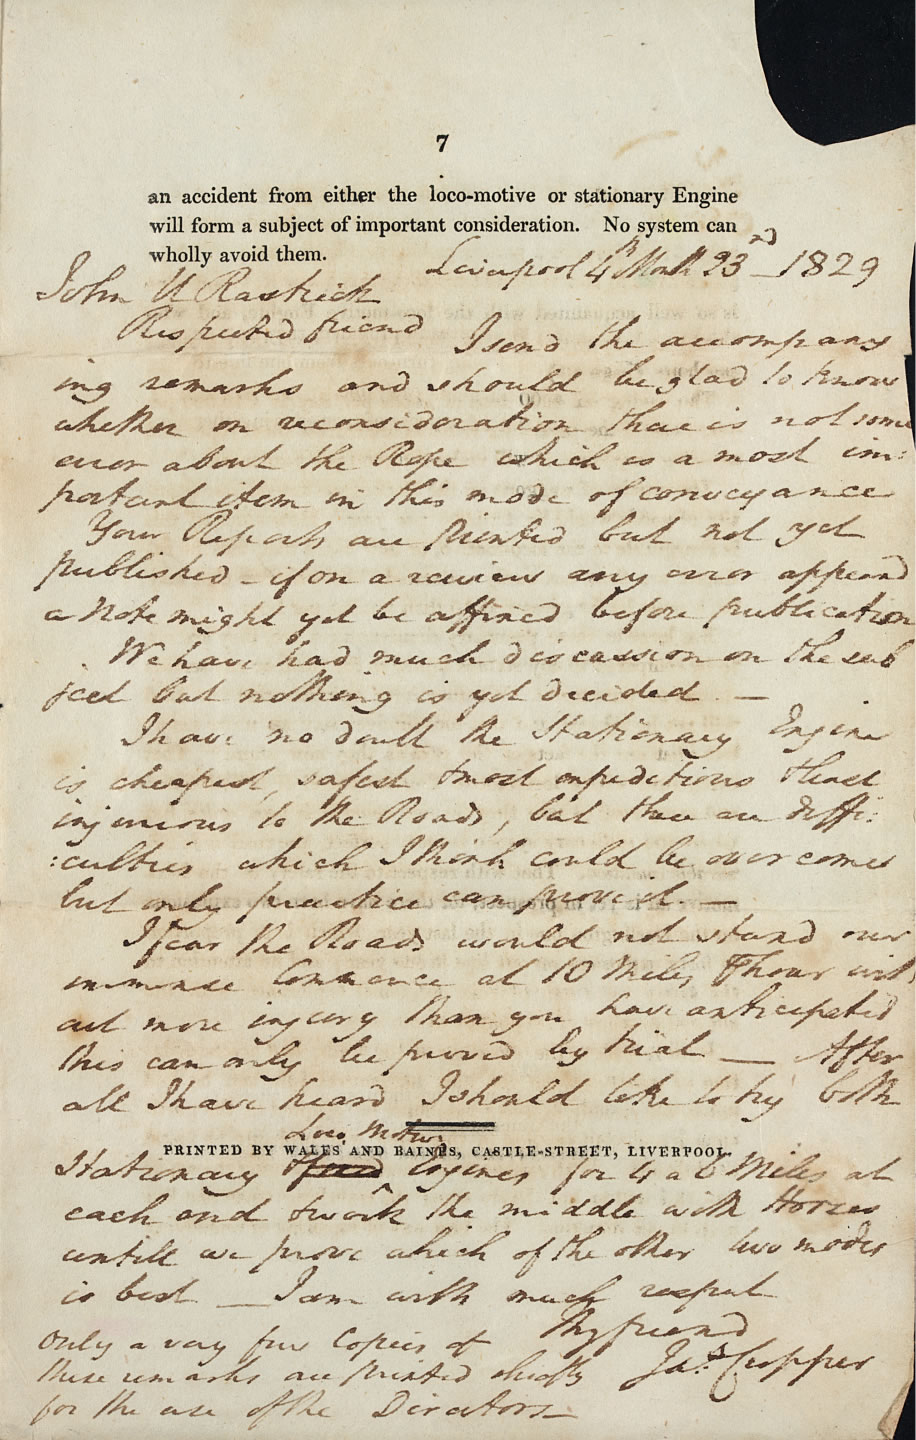 7
an accident from either the loco-motive or stationary Engine
will form a subject of important consideration. No system can
wholly avoid them.
Liverpool 4th Month 23rd – 1829
John U Rastrick
Respected friend
I send the accompany
ing remarks and should be glad to know
whether on reconsideration there is not some
error about the Rope which is a most im:
portant item in this mode of conveyance
Your Reports are printed but not yet
published – if on a review any error appeard
a Note might yet be affixed before publication
We have had much discussion on the sub
ject but nothing is yet decided –
I have no doubt the Stationary Engine
is cheapest, safest & most expeditious & least
injurious to the Roads, but there are diffi:
:culties which I think could be overcome
but only practice can prove it. –
I fear the Roads would not stand our
immense Commerce at 10 Miles P hour with
out more injury than you have anticipated
this can only be proved by trial — After
all I have heard I should like to try both
Loco Motive
PRINTED BY WALES AND BAINES, CASTLE-STREET, LIVERPOOL.
Stationary Engines for 4 a 6 Miles at
each end & work the middle with Horses
untill we prove which of the other two modes
is best — I am with much respect
Thy friend
Jas. Cropper
Only a very few Copies of
these remarks are printed chiefly
for the use of the Directors –